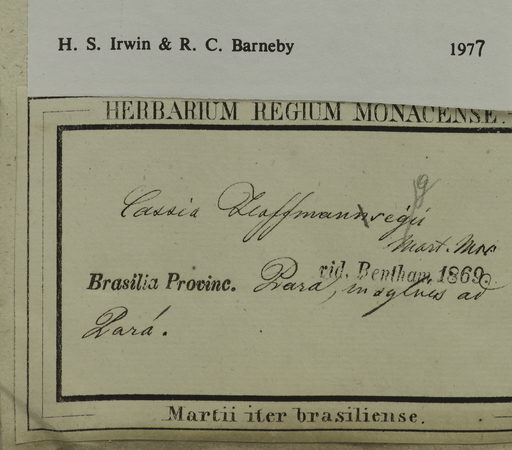 H. S. Irwin & R. C. Barneby 1977
HERBARIUM REGIUM MONACENSE.
g
Cassia Hoffmannsegii
Mart. Mss
vid. Bentham 1869.
Brasilia Provinc. Para, in sylvis ad
Pará.
Martii iter brasiliense.